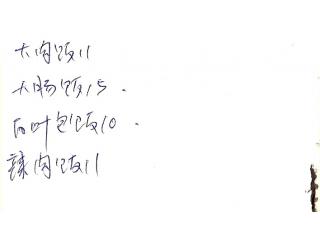 大肉饭11
大肠饭15.
百叶包饭10.
辣肉饭11